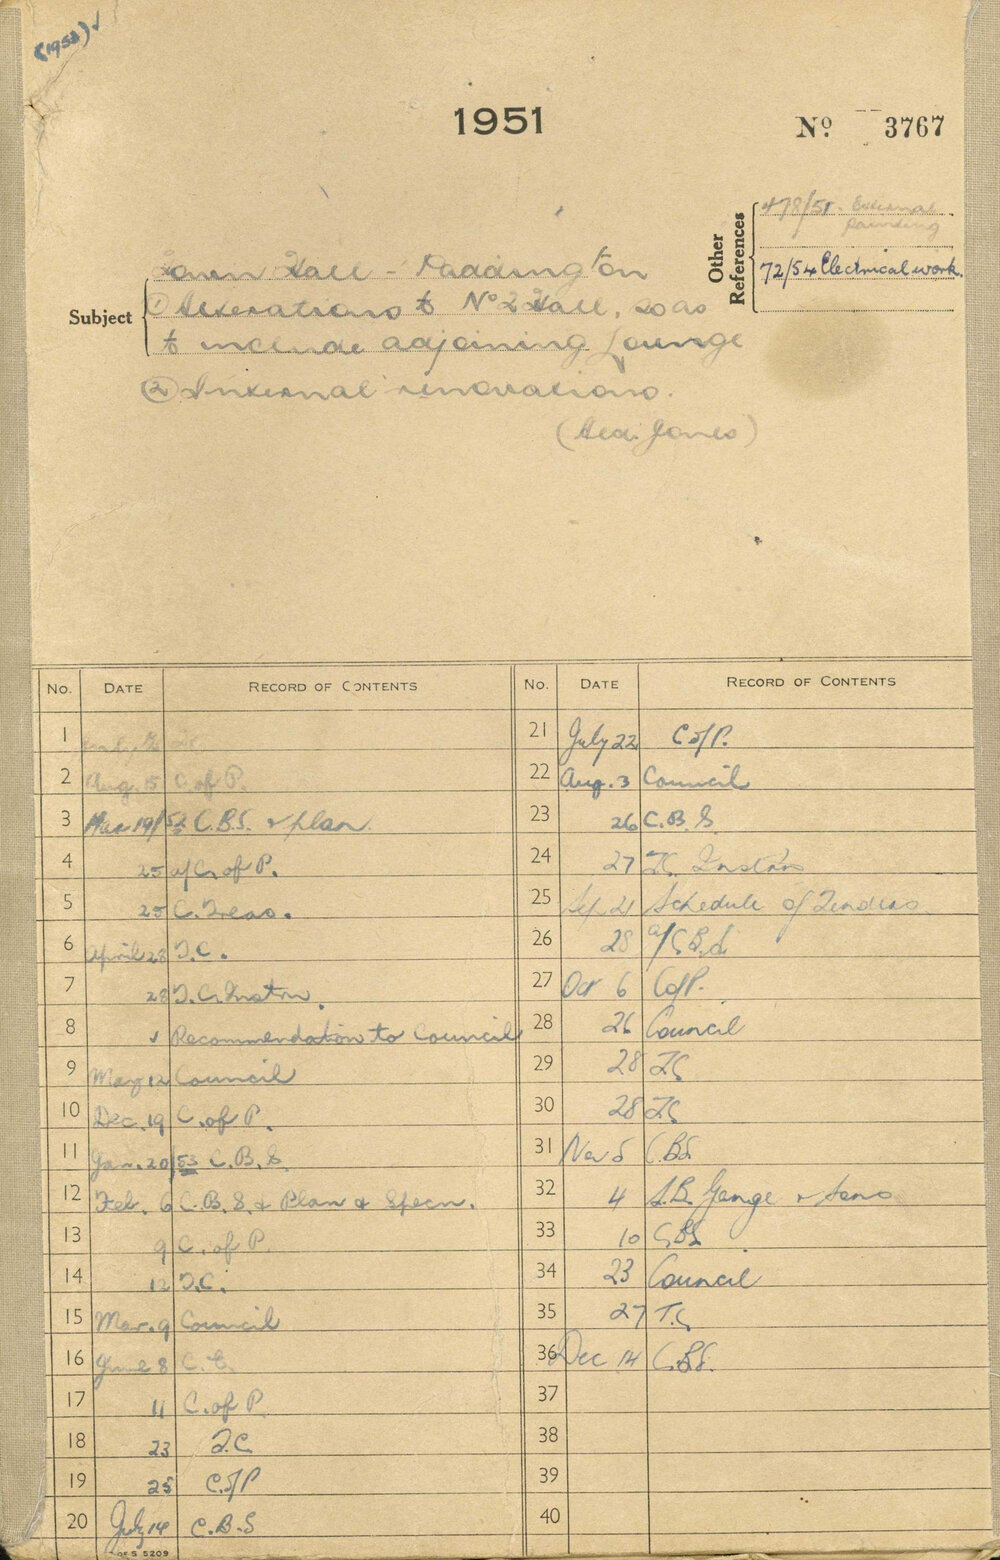 (1952) ✓
1951
No. 3767
Other References
478/51. External
Painting
72/54 Electrical work.
Subject
Town Hall - Paddington
① Alterations to No 2 Hall, so as
to include adjoining Lounge
② Internal renovations.
(Ald. Jones)
No. DATE RECORD OF CONTENTS
1
2 Aug. 15 C of P.
3 Mar 19/52 C.B.S. & plan.
4 25 a/C. of P.
5 25 C. Treas.
6 April 28 T.C.
7 28 T.C. Instrn.
8 Recommendation to Council
9 May 12 Council
10 Dec. 19 C. of P.
11 Jan. 20/53 C.B.S.
12 Feb. 6 C.B.S. & Plan & Specn.
13 9 C. of P.
14 12 T.C.
15 Mar. 9 Council
16 June 8
17 11 C. of P.
18 23 T.C.
19 25 C of P
20 July 14 C.B.S
No. DATE RECORD OF CONTENTS
21 July 22 C of P.
22 Aug. 3 Council
23 26 C.B.S.
24 27 T.C. Instrns
25 Sep. 21 Schedule of Tenders
26 28 a/C.B.S.
27 Oct 6 C of P.
28 26 Council
29 28 T.C
30 28 T.C
31 Nov 5 C.B.S.
32 4 & Sons
33 10 C.B.S.
34 23 Council
35 27 T.C
36 Dec 14 C.B.S.
37
38
39
40
S 5209